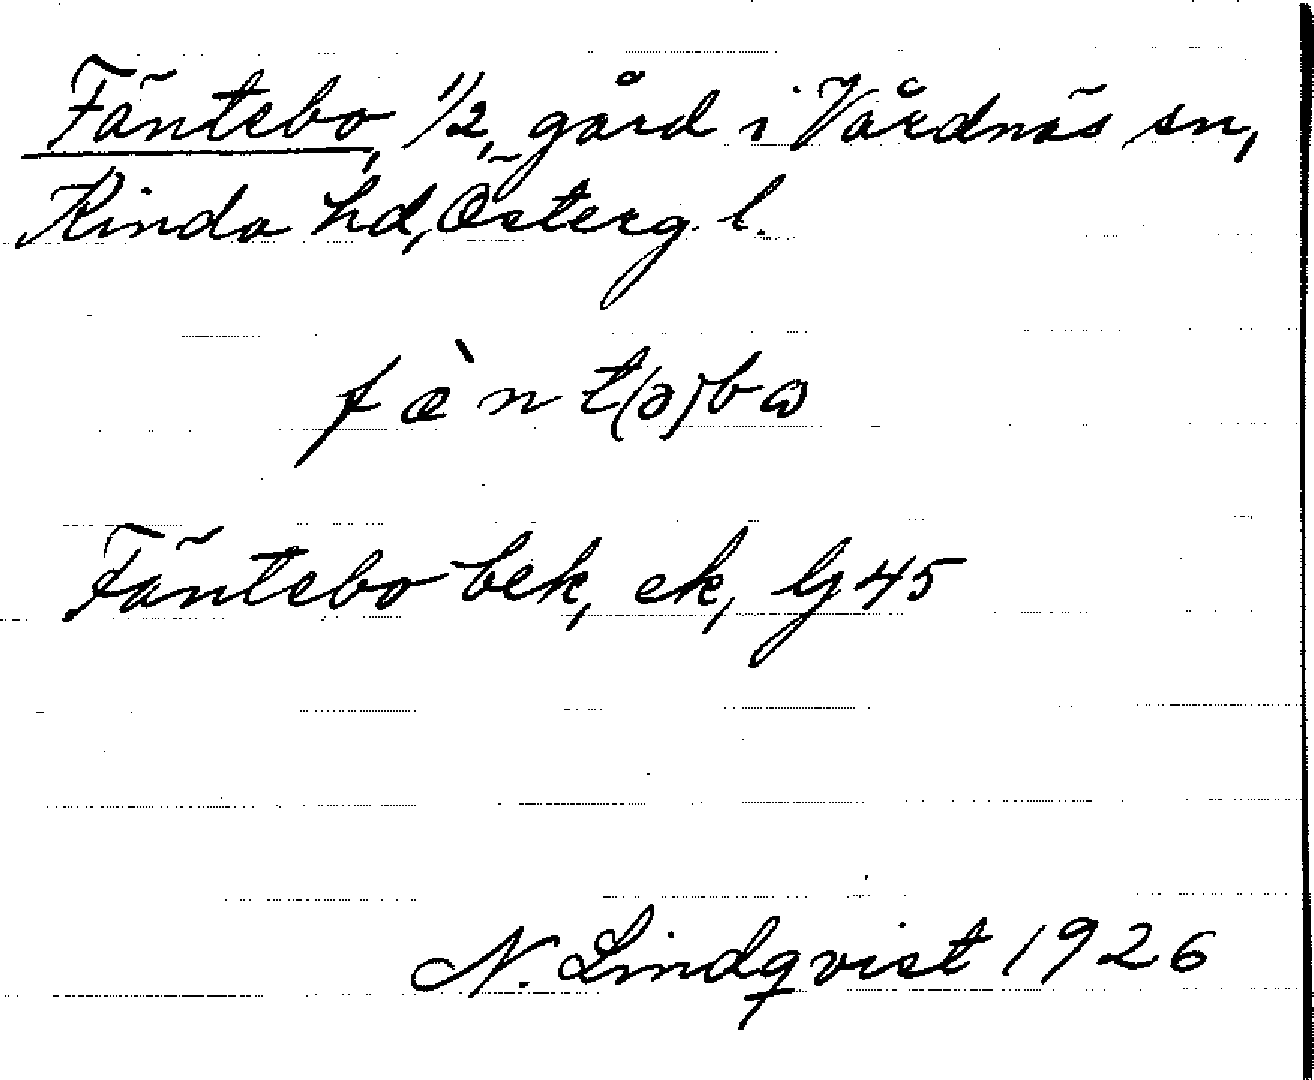 Fäntebo, 1/2, gård i Vårdnäs sn,
Kinda hd, Österg. l.
fæ̀nt(ə)bɷ
Fäntebo bek, ek, lj 45
N. Lindqvist 1926